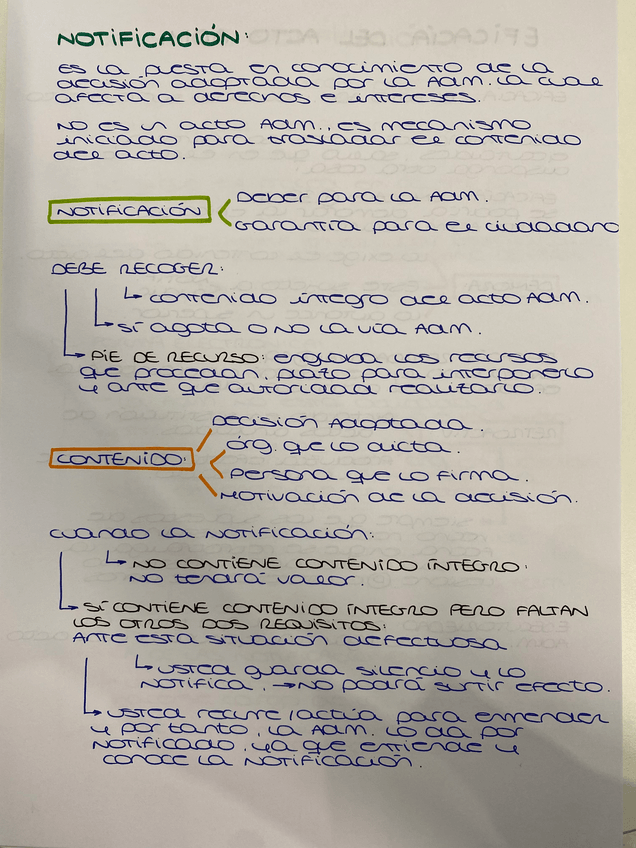 NOTIFICACIÓN:
ES LA PUESTA EN CONOCIMIENTO DE LA
DECISIÓN ADOPTADA POR LA ADM. LA CUAL
AFECTA A DERECHOS E INTERESES.
NO ES UN ACTO ADM., ES MECANISMO
INICIADO PARA TRASLADAR EL CONTENIDO
DEL ACTO.
DEBER PARA LA ADM.
NOTIFICACIÓN <
GARANTÍA PARA EL CIUDADANO
DEBE RECOGER:
↳ CONTENIDO ÍNTEGRO DEL ACTO ADM.
↳ SÍ AGOTA O NO LA VÍA ADM.
↳ PIE DE RECURSO: ENGLOBA LOS RECURSOS
QUE PROCEDAN, PLAZO PARA INTERPONERLO
Y ANTE QUE AUTORIDAD REALIZARLO.
DECISIÓN ADOPTADA.
ÓRG. QUE LO DICTA.
CONTENIDO:
PERSONA QUE LO FIRMA.
MOTIVACIÓN DE LA DECISIÓN.
CUANDO LA NOTIFICACIÓN:
↳ NO CONTIENE CONTENIDO ÍNTEGRO:
NO TENDRÁ VALOR.
↳ SÍ CONTIENE CONTENIDO ÍNTEGRO PERO FALTAN
LOS OTROS DOS REQUISITOS:
ANTE ESTA SITUACIÓN DEFECTUOSA
↳ USTED GUARDA SILENCIO Y LO
NOTIFICA. → NO PODRÁ SURTIR EFECTO.
↳ USTED RECURRE/ACTÚA PARA ENMENDER
Y POR TANTO, LA ADM. LO DA POR
NOTIFICADO, YA QUE ENTIENDE Y
CONOCE LA NOTIFICACIÓN.